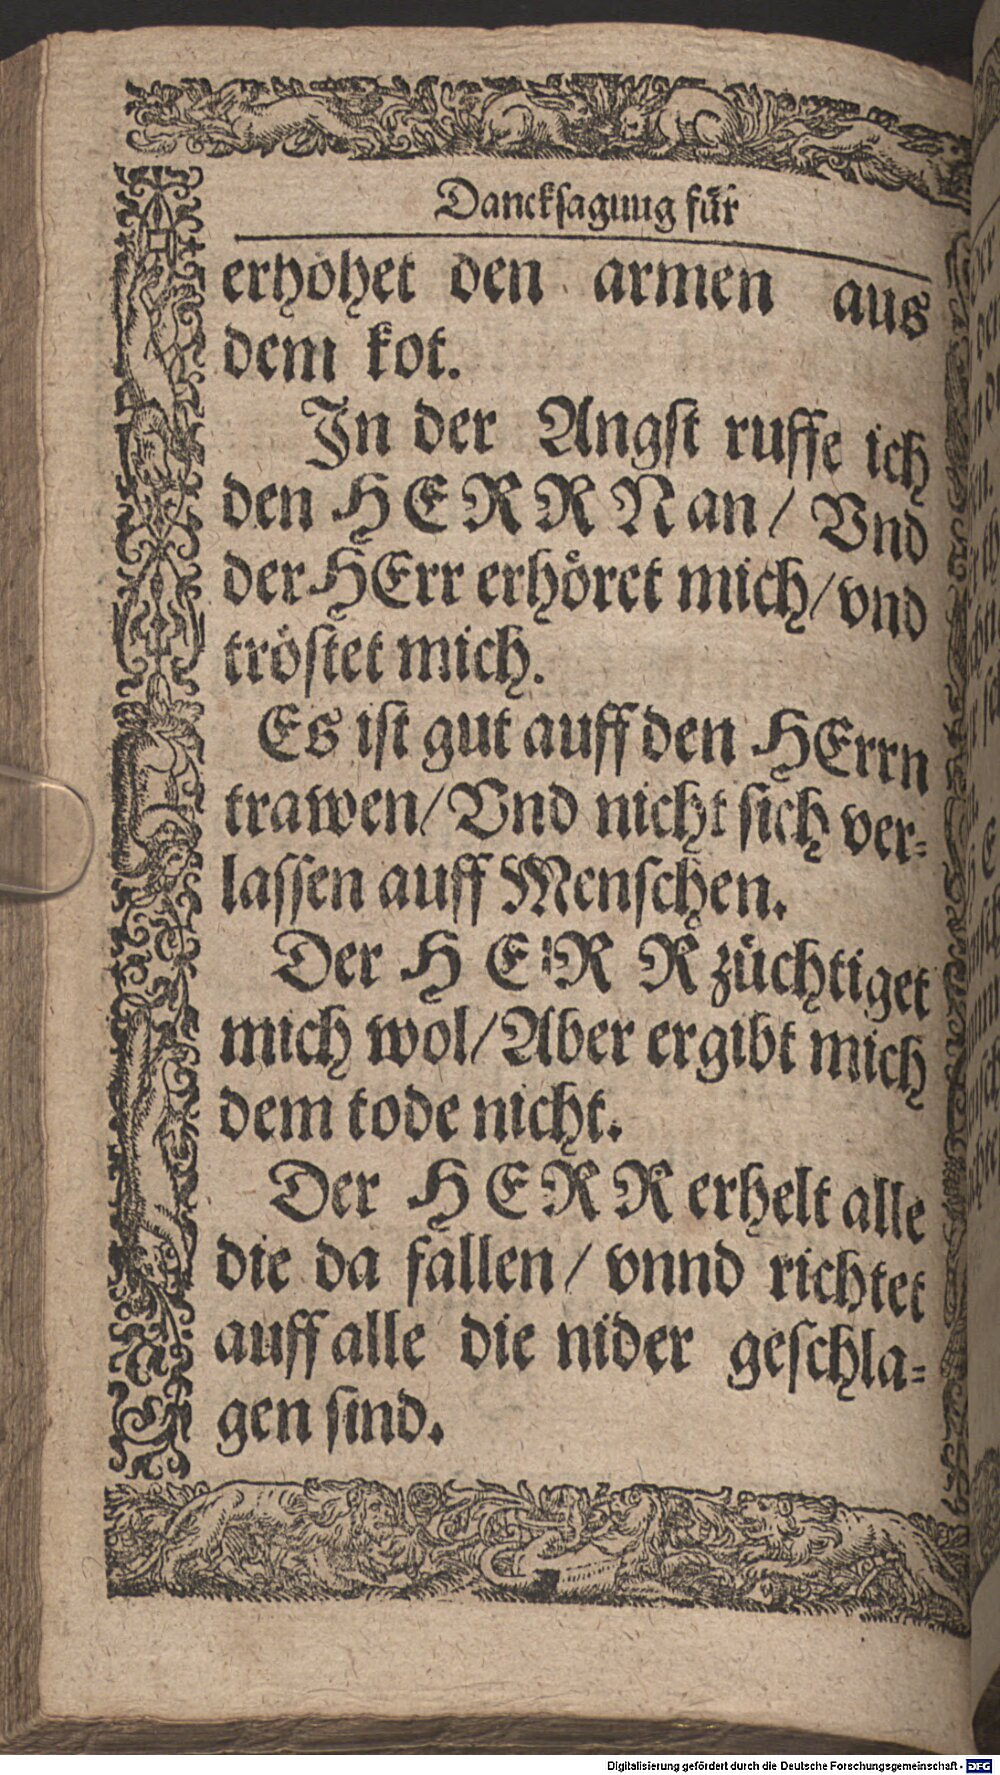 Dancksagung für
erhohet den armen aus
dem kot.
In der Angst ruffe ich
den HERRN an/ Vnd
der HErr erhöret mich/ vnd
tröstet mich.
Es ist gut auff den HErrn
trawen/ Vnd nicht sich ver=
lassen auff Menschen.
Der HERR züchtiget
mich wol/ Aber er gibt mich
dem tode nicht.
Der HERR erhelt alle
die da fallen/ vnnd richtet
auff alle die nider geschla=
gen sind.
Digitalisierung gefördert durch die Deutsche Forschungsgemeinschaft - DFG